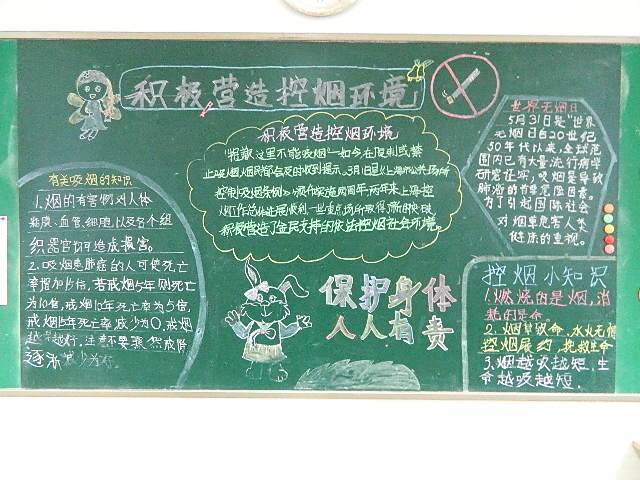 积极营造控烟环境
有关吸烟的知识
1.烟的有害物对人体
粘膜、血管、细胞,以及各个组
织器官均可造成损害。
2.吸烟患肺症的人可使死亡
率增加15倍,若戒烟5年则死亡
为10倍,戒烟10年死亡率为5倍,
戒烟15年死亡率减少为0,戒烟
越早越好,
逐渐减少为好
积极营造控烟环境
“抱歉这里不能吸烟”如今在原则或禁
止吸烟,烟民皆会及时收到提示。3月1日是《上海市公共场所
控制吸烟条例》颁布实施两周年,两年来上海控
烟工作总体进展顺利,一些重点场所取得了新的突破
积极营造了全民支持的依法控烟社会环境。
保护身体
人人有责
世界无烟日
5月31日是“世界
无烟日自20世纪
50年代以来,全球范
围内已有大量流行病学
研究证实,吸烟是导致
肺癌的首要危险因素。
为了引起国际社会
对烟草危害人类
健康的重视。
控烟小知识
1.燃烧的是烟,消
耗的是命。
2.烟草致命,水火无情
控烟履约,挽救生命
3.烟越吸越短,生
命越吸越短.